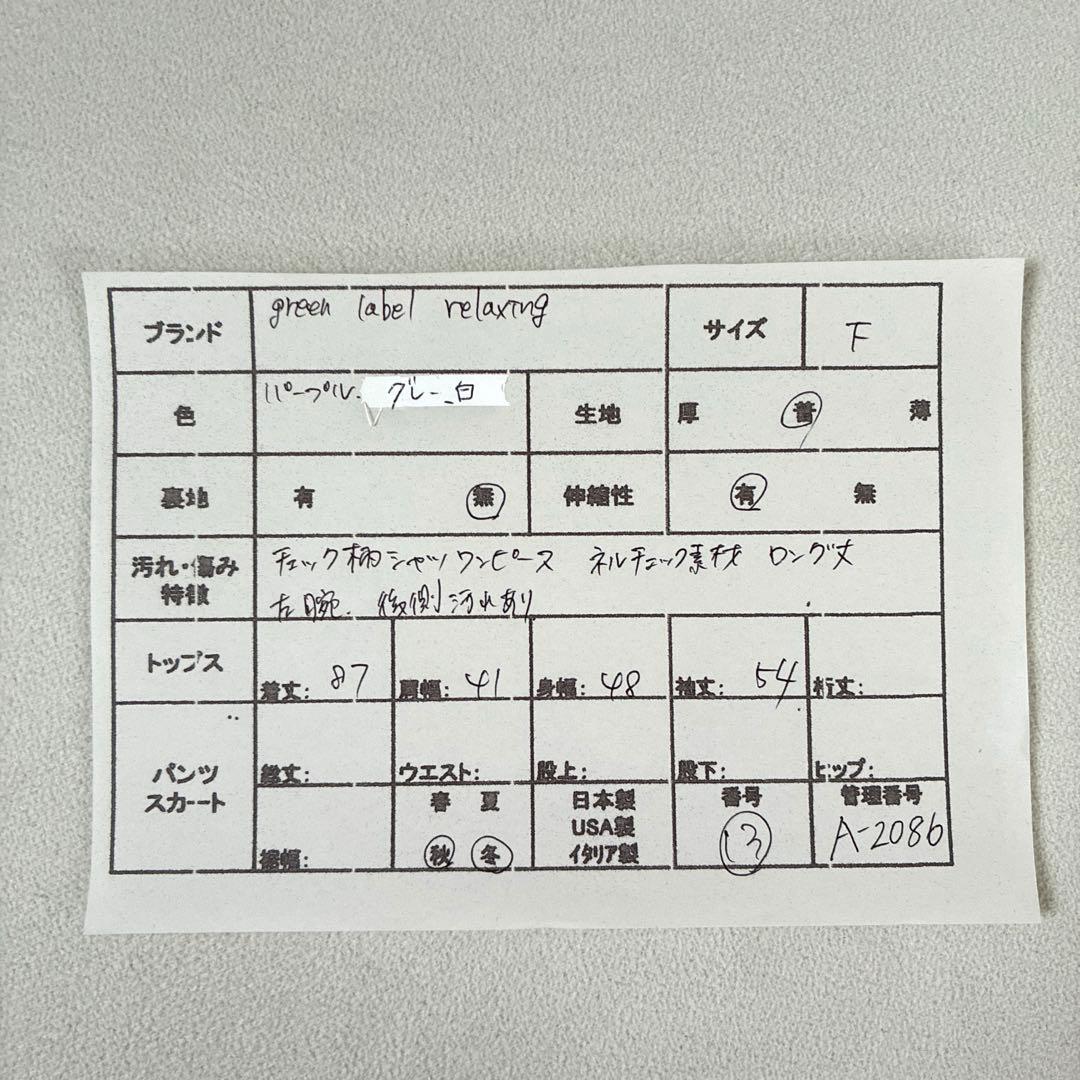 ブランド green label relaxing サイズ F
色 パープル、グレー、白 生地 厚 普 薄
裏地 有 無 伸縮性 有 無
汚れ・傷み 特徴 チェック柄シャツワンピース ネルチェック素材 ロング丈
左腕、後側汚れあり
トップス 着丈: 87 肩幅: 41 身幅: 48 袖丈: 54 裄丈:
パンツ スカート 総丈: ウエスト: 股上: 股下: ヒップ:
裾幅: 春 夏 秋 冬 日本製 USA製 イタリア製 番号 13 管理番号 A-2086